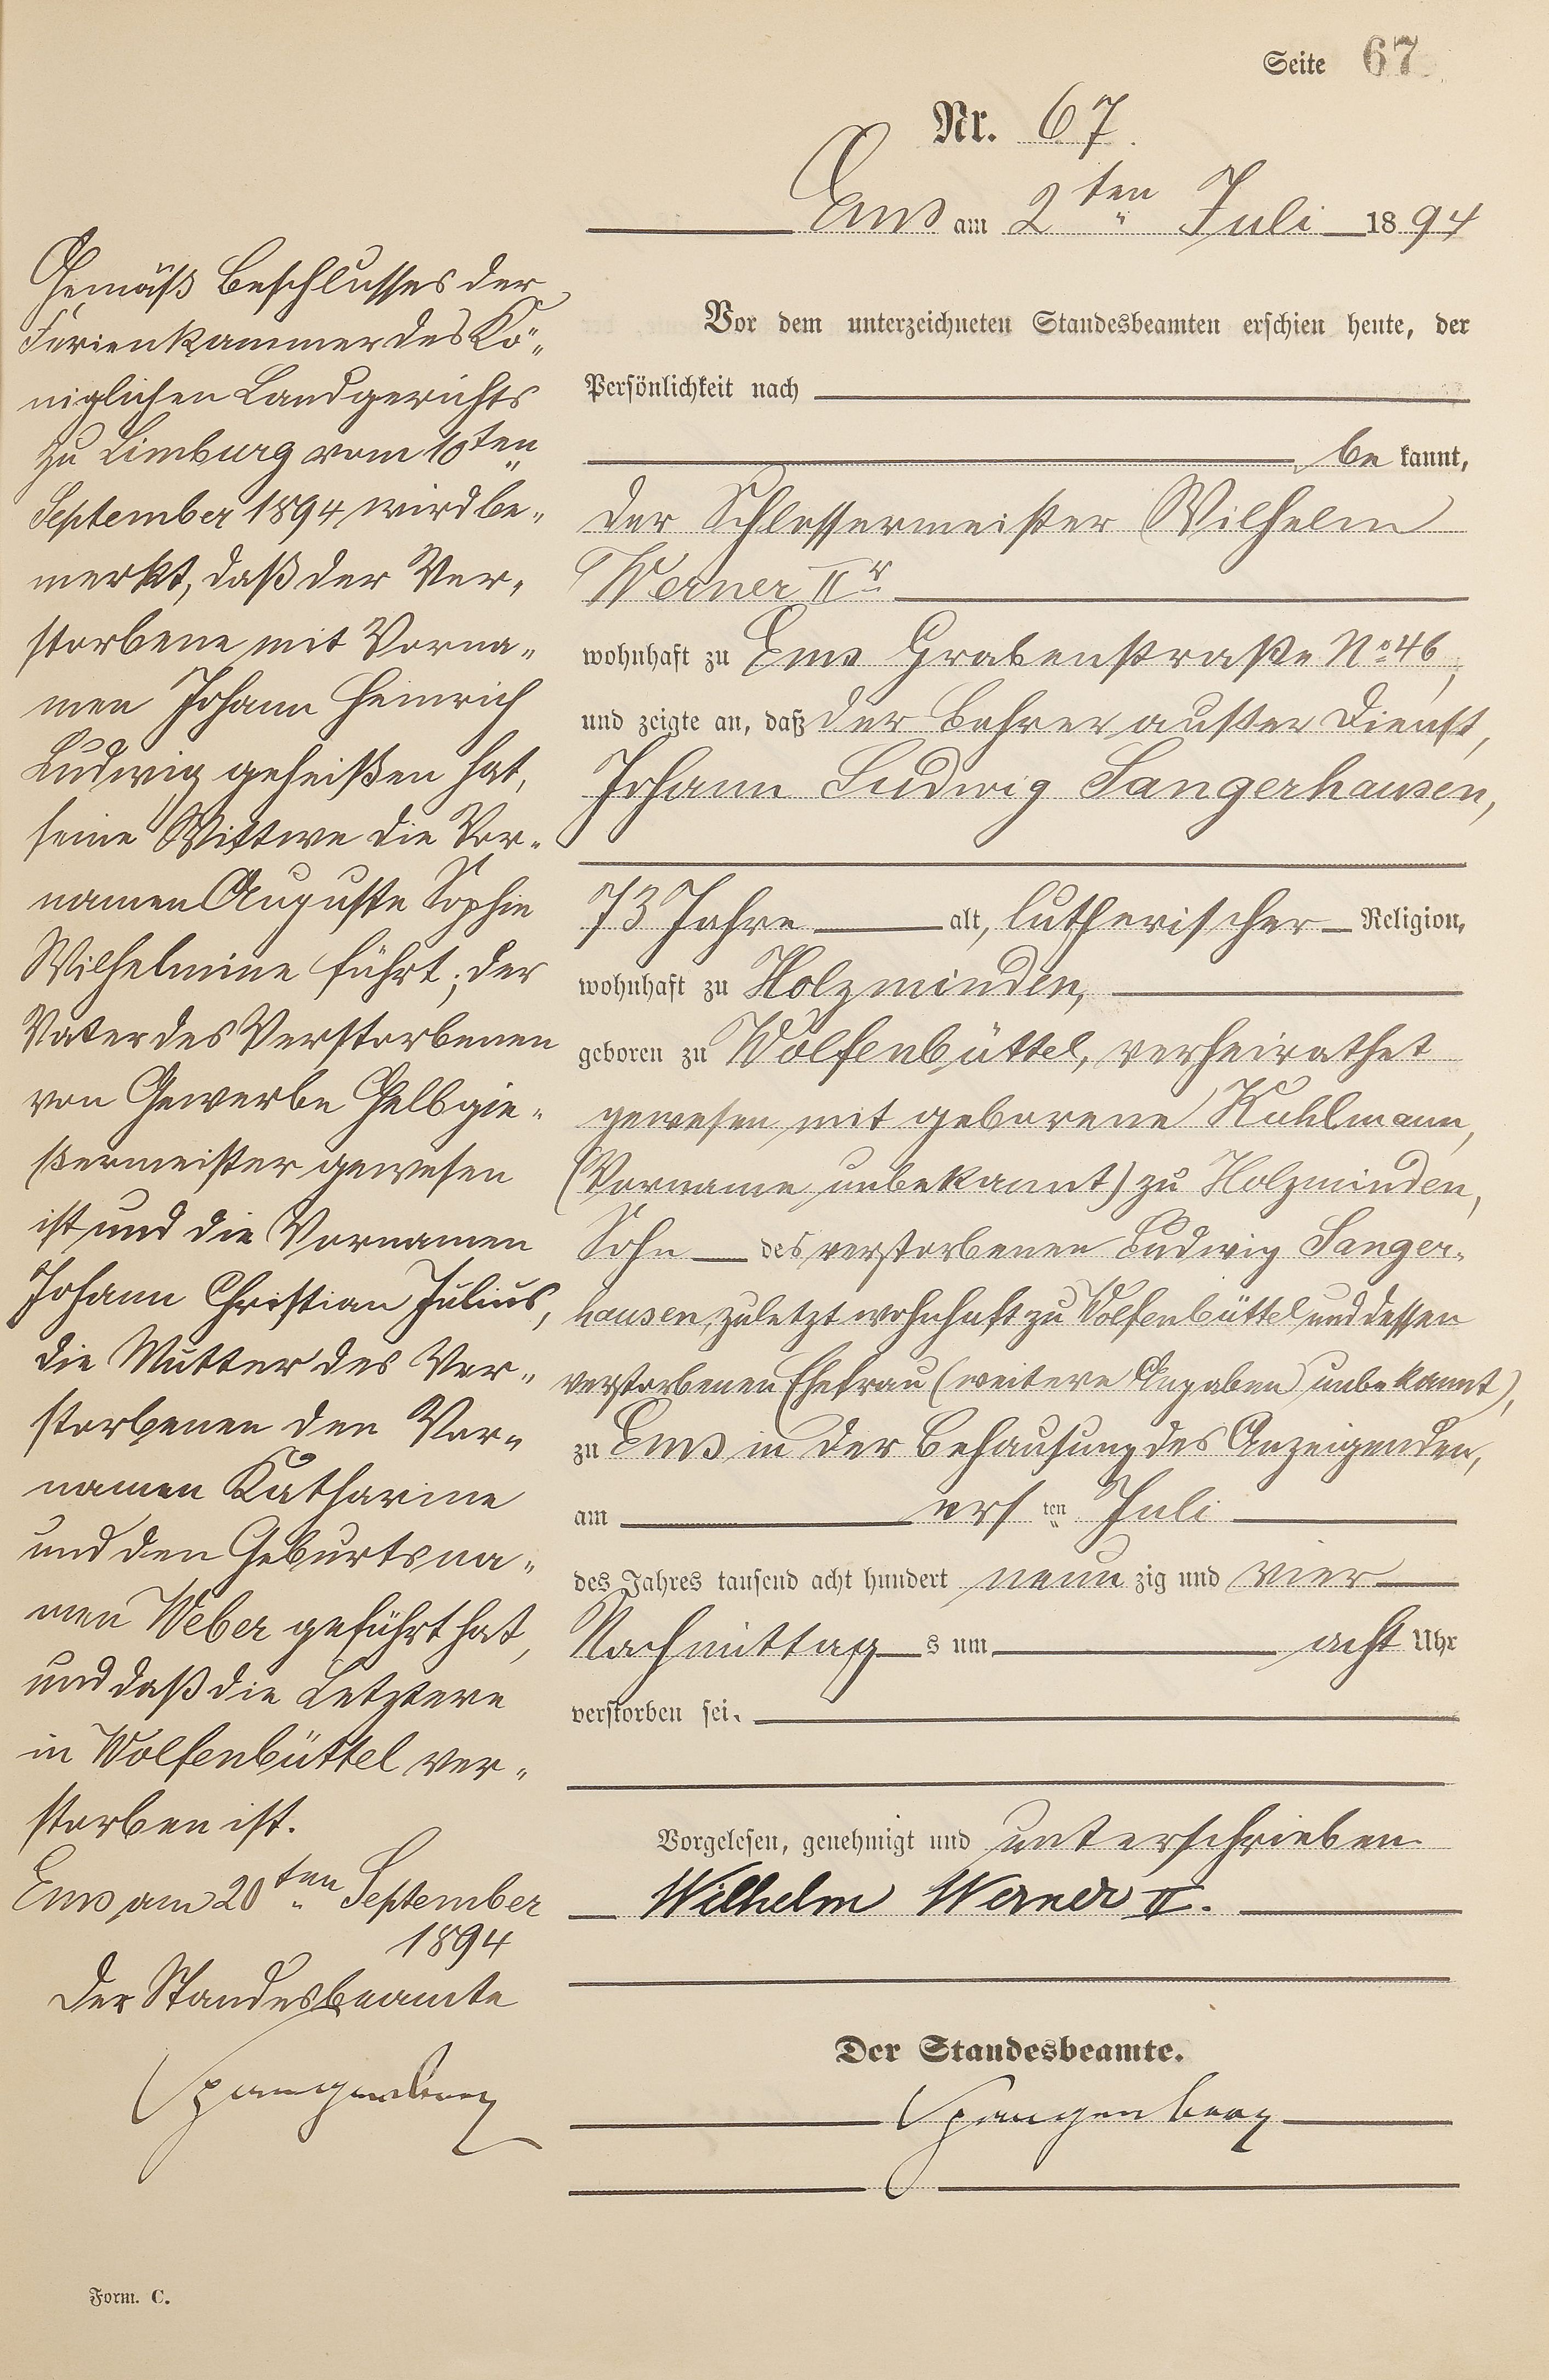 Seite 67
Nr. 67.
Ems am 2ten Juli 1894
Vor dem unterzeichneten Standesbeamten erschien heute, der
Persönlichkeit nach
be kannt,
der Schlossermeister Wilhelm
Werner IIr
wohnhaft zu Ems Grabenstraße No 46,
und zeigte an, daß der Lehrer außer Dienst,
Johann Ludwig Sangerhausen,
73 Jahre alt, lutherischer Religion,
wohnhaft zu Holzminden,
geboren zu Wolfenbüttel, verheirathet
gewesen mit geborene Kuhlmann,
(Vorname unbekannt) zu Holzminden,
Sohn des verstorbenen Ludwig Sanger-
hausen, zuletzt wohnhaft zu Wolfenbüttel und dessen
verstorbenen Ehefrau (weitere Angaben unbekannt),
zu Ems in der Behausung des Anzeigenden,
am ers ten Juli
des Jahres tausend acht hundert neun zig und vier
Nachmittag s um acht Uhr
verstorben sei.
Vorgelesen, genehmigt und unterschrieben
Wilhelm Werner II.
Der Standesbeamte.
Spangenberg
Gemäß Beschlusses der
Ferienkammer des Kö-
niglichen Landgerichts
zu Limburg vom 10ten
September 1894 wird be-
merkt, daß der Ver-
storbene mit Vorna-
men Johann Heinrich
Ludwig geheißen hat,
seine Wittwe die Vor-
namen Auguste Sophie
Wilhelmine führt; der
Vater des Verstorbenen
von Gewerbe Gelbgie-
ßermeister gewesen
ist und die Vornamen
Johann Christian Julius,
die Mutter des Ver-
storbenen den Vor-
namen Katharine
und den Geburtsna-
men Weber geführt hat,
und daß die Letztere
in Wolfenbüttel ver-
storben ist.
Ems am 20ten September
1894
Der Standesbeamte
Spangenberg
Form. C.